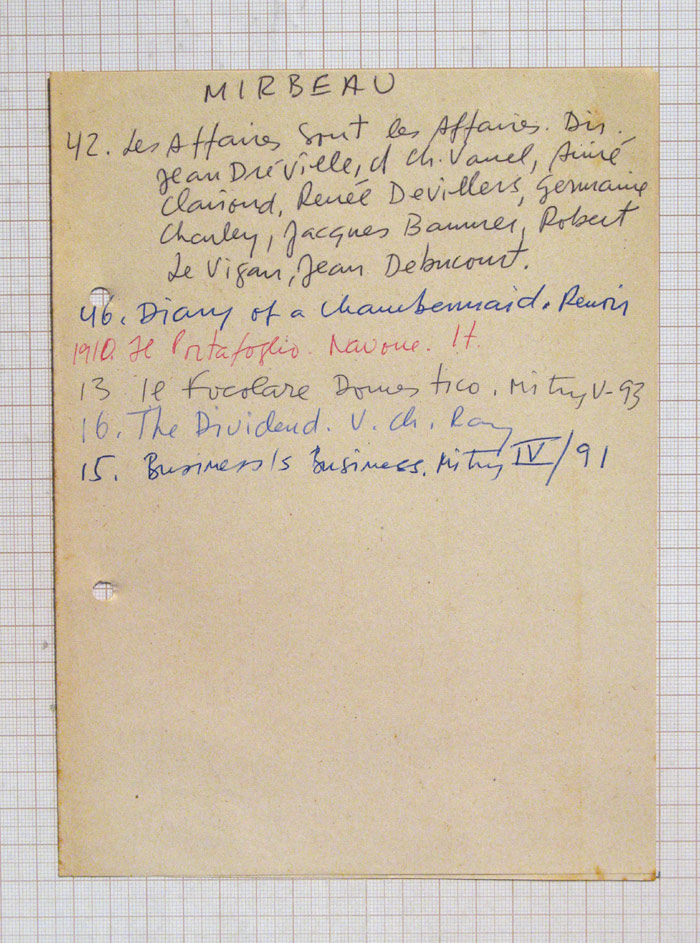 MIRBEAU
42. Les Affaires sont les Affaires. Dir.
Jean Dréville, d Ch. Vanel, Aimé
Clariond, Renée Devillers, Germaine
Charley, Jacques Baumer, Robert
Le Vigan, Jean Debucourt.
46. Diary of a Chambermaid. Renoir
1910. Il Portafoglio. Navone. It.
13 Il Focolare Domestico. Mitry V-93
16. The Dividend. V. Ch. Ray
15. Business Is Business. Mitry IV/91